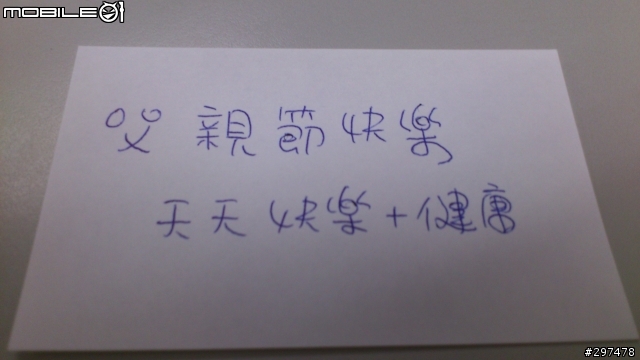 MOBILE01
父親節快樂
天天快樂+健康
#297478